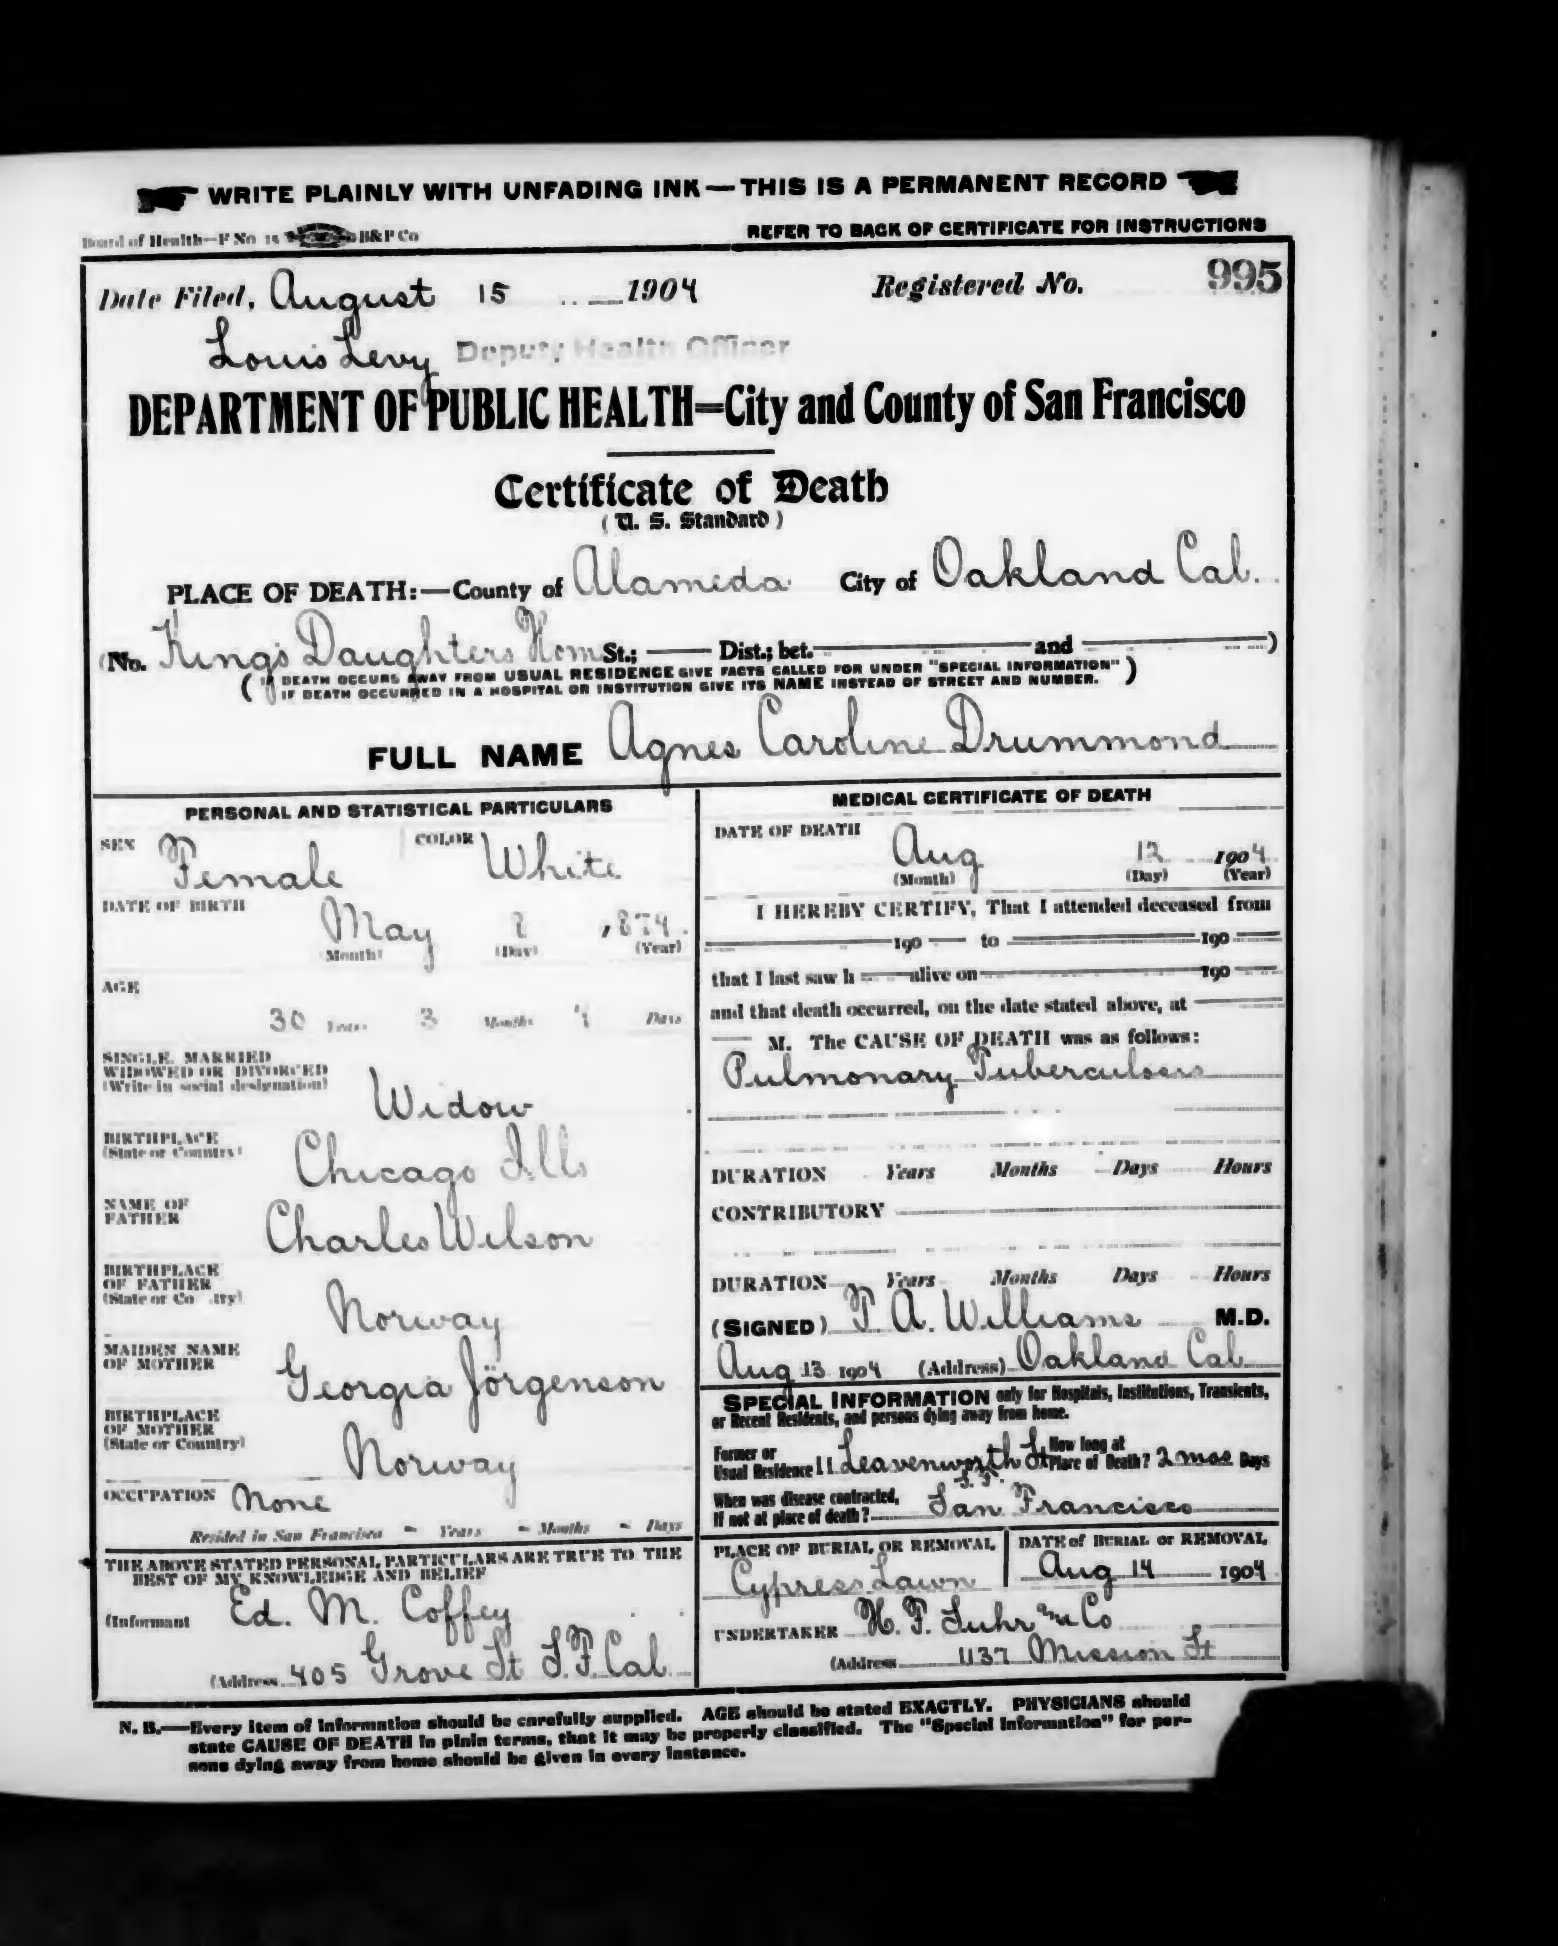 WRITE PLAINLY WITH UNFADING INK—THIS IS A PERMANENT RECORD
Board of Health—F No 15 B&P Co
REFER TO BACK OF CERTIFICATE FOR INSTRUCTIONS
Date Filed, August 15 1904 Registered No. 995
Louis Levy Deputy Health Officer
DEPARTMENT OF PUBLIC HEALTH=City and County of San Francisco
Certificate of Death
(U. S. Standard)
PLACE OF DEATH:—County of Alameda City of Oakland Cal.
(No. King's Daughters Home St.; Dist.; bet. and )
(IF DEATH OCCURS AWAY FROM USUAL RESIDENCE GIVE FACTS CALLED FOR UNDER "SPECIAL INFORMATION"
IF DEATH OCCURRED IN A HOSPITAL OR INSTITUTION GIVE ITS NAME INSTEAD OF STREET AND NUMBER.)
FULL NAME Agnes Caroline Drummond
PERSONAL AND STATISTICAL PARTICULARS
SEX Female COLOR White
DATE OF BIRTH
May 8 1874
(Month) (Day) (Year)
AGE
30 Years 3 Months 4 Days
SINGLE, MARRIED
WIDOWED OR DIVORCED
(Write in social designation)
Widow
BIRTHPLACE
(State or Country)
Chicago Ills
NAME OF
FATHER
Charles Wilson
BIRTHPLACE
OF FATHER
(State or Co try)
Norway
MAIDEN NAME
OF MOTHER
Georgia Jörgenson
BIRTHPLACE
OF MOTHER
(State or Country)
Norway
OCCUPATION None
Resided in San Francisco - Years - Months - Days
THE ABOVE STATED PERSONAL PARTICULARS ARE TRUE TO THE
BEST OF MY KNOWLEDGE AND BELIEF
(Informant Ed. M. Coffey
(Address 405 Grove St S.F. Cal.
MEDICAL CERTIFICATE OF DEATH
DATE OF DEATH
Aug 12 1904
(Month) (Day) (Year)
I HEREBY CERTIFY, That I attended deceased from
190 to 190
that I last saw h alive on 190
and that death occurred, on the date stated above, at
M. The CAUSE OF DEATH was as follows:
Pulmonary Tuberculosis
DURATION Years Months Days Hours
CONTRIBUTORY
DURATION Years Months Days Hours
(SIGNED) T. A. Williams M.D.
Aug 13 1904 (Address) Oakland Cal
SPECIAL INFORMATION only for Hospitals, Institutions, Transients,
or Recent Residents, and persons dying away from home.
Former or
Usual Residence 11 Leavenworth St S.F.
How long at
Place of Death? 2 mos Days
When was disease contracted,
If not at place of death? San Francisco
PLACE OF BURIAL OR REMOVAL
Cypress Lawn
DATE of BURIAL or REMOVAL
Aug 14 1904
UNDERTAKER H. F. Suhr and Co
(Address 1137 Mission St
N. B.—Every item of information should be carefully supplied. AGE should be stated EXACTLY. PHYSICIANS should
state CAUSE OF DEATH in plain terms, that it may be properly classified. The "Special Information" for per-
sons dying away from home should be given in every instance.